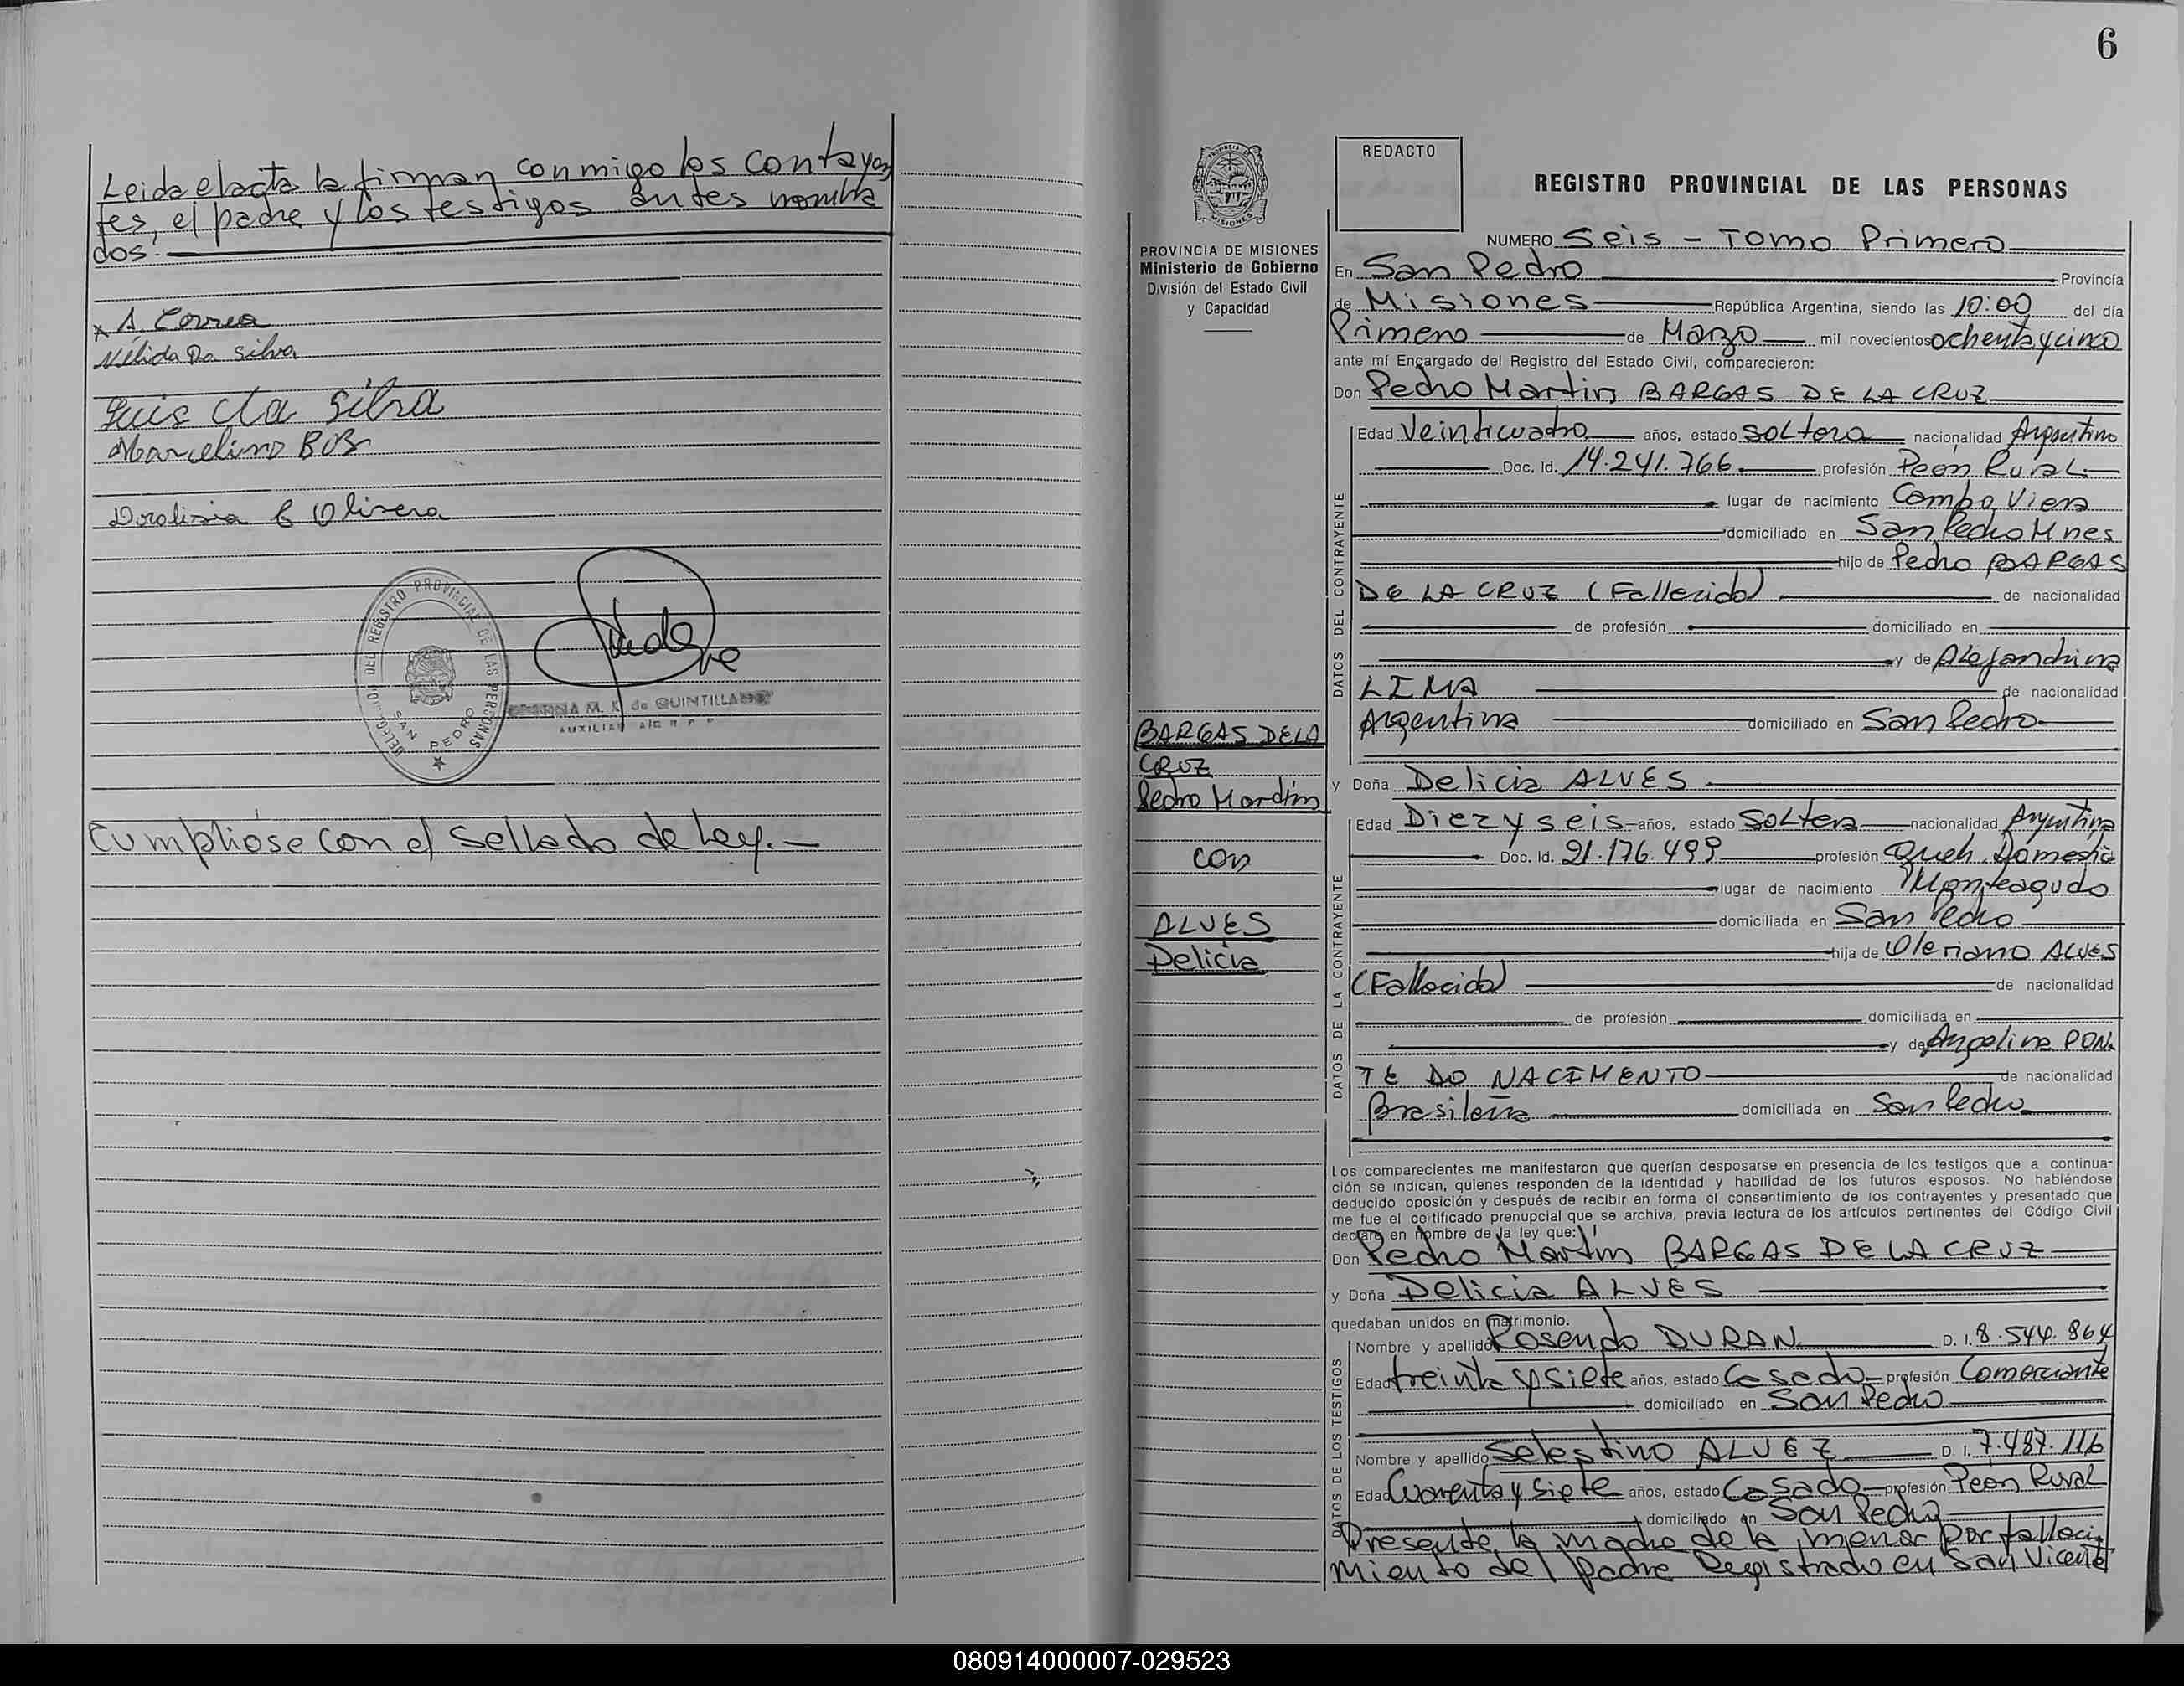 Leida el acta la firman conmigo los contrayen
tes, el padre y los testigos antes nombra
dos.
x A. Correa
Nélida Da Silva
Luis da Silva
Marcelino
Olivera
DEL REGISTRO PROVINCIAL DE LAS PERSONAS
SAN PEDRO
M. K. de QUINTILLANO
AUXILIAR
Cumpliose con el sellado de Ley.-
6
PROVINCIA DE MISIONES
Ministerio de Gobierno
División del Estado Civil
y Capacidad
BARGAS DE LA
CRUZ
Pedro Martin
con
ALVES
Delicia
REDACTO
REGISTRO PROVINCIAL DE LAS PERSONAS
NUMERO Seis - Tomo Primero
En San Pedro Provincia
de Misiones República Argentina, siendo las 10:00 del día
Primero de Marzo mil novecientos ochenta y cinco
ante mí Encargado del Registro del Estado Civil, comparecieron:
Don Pedro Martin BARGAS DE LA CRUZ
DATOS DEL CONTRAYENTE
Edad Veinticuatro años, estado soltero nacionalidad Argentino
Doc. Id. 14.241.766 profesión Peón Rural
lugar de nacimiento Campo Viera
domiciliado en San Pedro Mnes
hijo de Pedro BARGAS
DE LA CRUZ (Fallecido) de nacionalidad
de profesión domiciliado en
y de Alejandrina
LIMA de nacionalidad
Argentina domiciliado en San Pedro
y Doña Delicia ALVES
DATOS DE LA CONTRAYENTE
Edad Diez y seis años, estado Soltera nacionalidad Argentina
Doc. Id. 21.176.499 profesión Queh. Domestic
lugar de nacimiento Monteagudo
domiciliada en San Pedro
hija de Oleriano ALVES
(Fallecido) de nacionalidad
de profesión domiciliada en
y de Angelina PON
TE DO NACIMENTO de nacionalidad
Brasileña domiciliada en San Pedro
Los comparecientes me manifestaron que querían desposarse en presencia de los testigos que a continua-
ción se indican, quienes responden de la identidad y habilidad de los futuros esposos. No habiéndose
deducido oposición y después de recibir en forma el consentimiento de los contrayentes y presentado que
me fue el certificado prenupcial que se archiva, previa lectura de los artículos pertinentes del Código Civil
declaro en nombre de la ley que:
Don Pedro Martin BARGAS DE LA CRUZ
y Doña Delicia ALVES
quedaban unidos en matrimonio.
DATOS DE LOS TESTIGOS
Nombre y apellido Rosendo DURAN D. I. 8.544.864
Edad treinta y siete años, estado Casado profesión Comerciante
domiciliado en San Pedro
Nombre y apellido Selestino ALVEZ D. I. 7.487.116
Edad Cuarenta y siete años, estado Casado profesión Peón Rural
domiciliado en San Pedro
Presente la madre de la menor por falleci
miento del padre Registrado en San Vicente
080914000007-029523